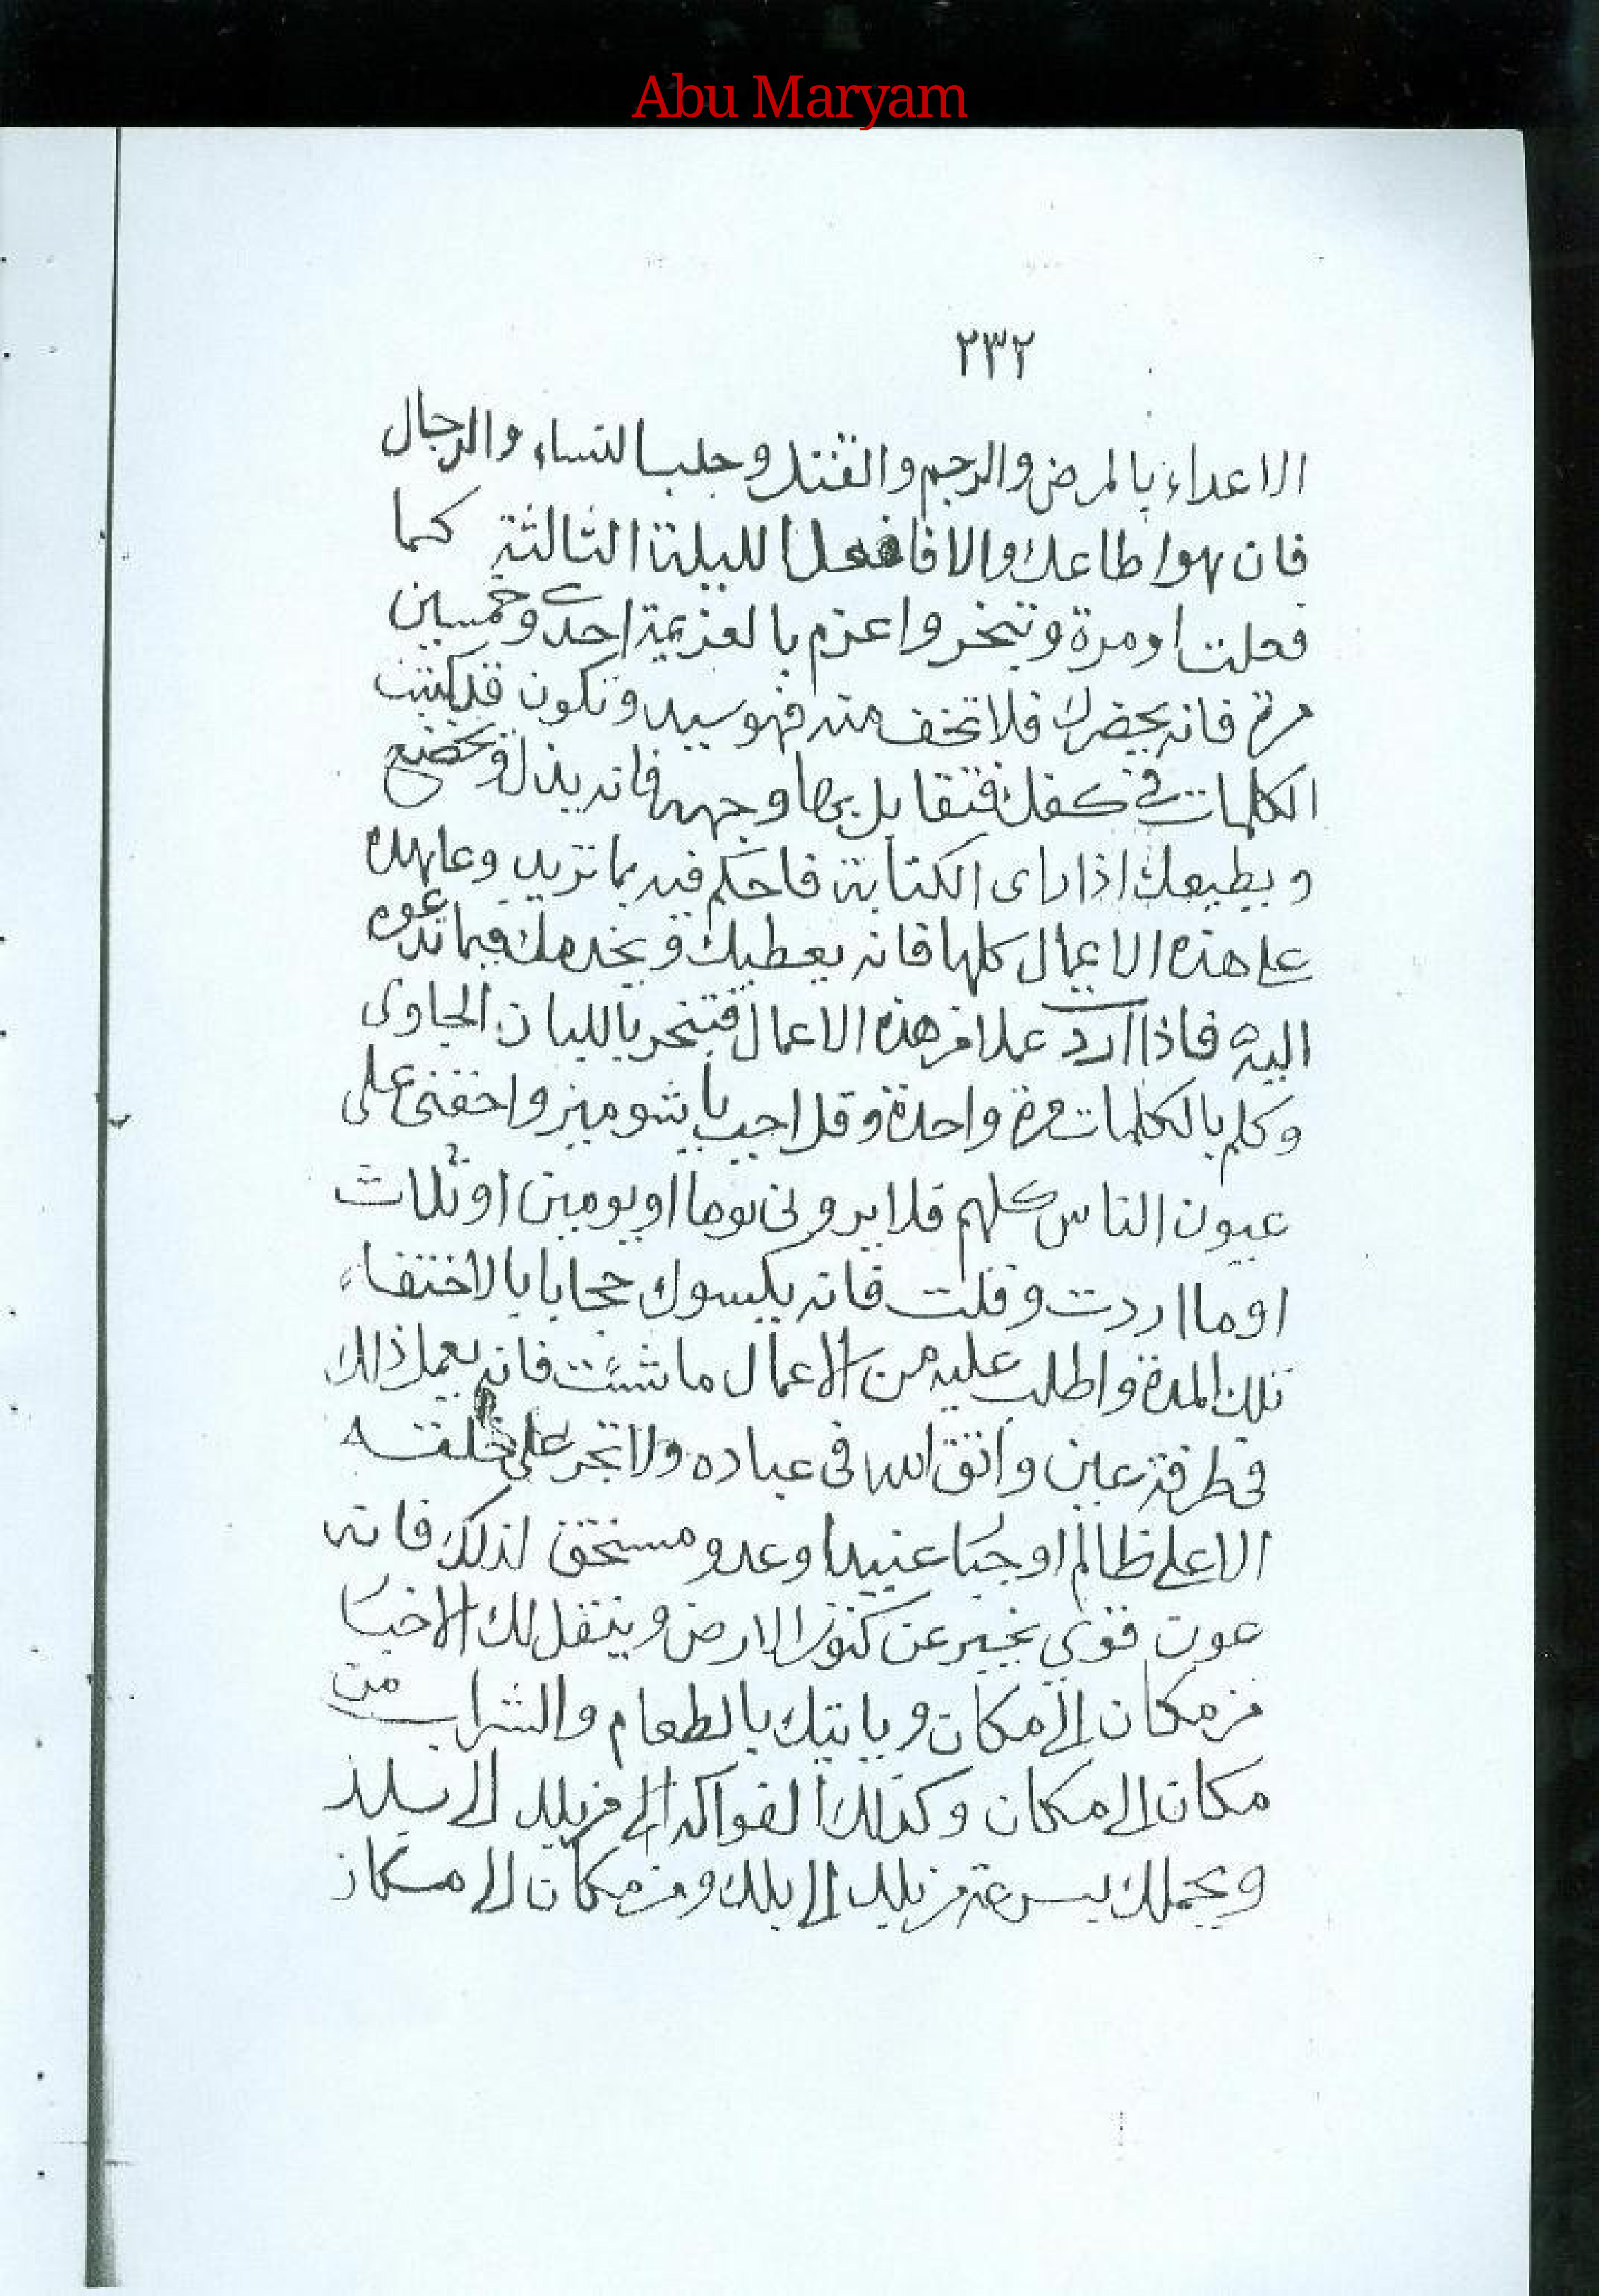 Abu Maryam
٢٣٢
الاعداء بالمرض والرجم والقتل وجلب النساء والرجال
فان هوا طاعك والا فافعل الليلة الثالثة كما
فعلت اومرة وتبخر واعزم بالعزيمة احدى وخمسين
مرة فانه يحضرك فلا تخف منه فهو سيد وتكون قد كتبت
الكلمات في كفك فتقابل بها وجهه فانه يذل ويخضع
ويطيعك اذا راى الكتابة فاحكم فيه بما تريد وعاهده
على هذه الاعمال كلها فانه يعطيك ويخدمك فيما تدعوه
اليه فاذا اردت عملا من هذه الاعمال فتبخر باللبان الجاوى
وكلم بالكلمات مرة واحدة وقل اجب يا شوميز واخفنى على
عيون الناس كلهم فلا يرونى يوما او يومين او ثلاث
اوما اردت وقلت فانه يكسوك حجابا بالاختفاء
تلك المدة واطلب عليه من الاعمال ما شئت فانه يعمل ذالك
فى طرفة عين واتق الله فى عباده ولا تجر على خلقه
الا على ظالم او جبا عنيدا وعدو مستحق لذلك فانه
عون قوي يخبر عن كنوز الارض وينقل لك الاخبا
من مكان الى مكان وياتيك بالطعام والشراب من
مكان الى مكان وكذلك الفواكه الى من بلد الى بلد
ويحملك بسرعة من بلد الى بلد ومن مكان الى مكان